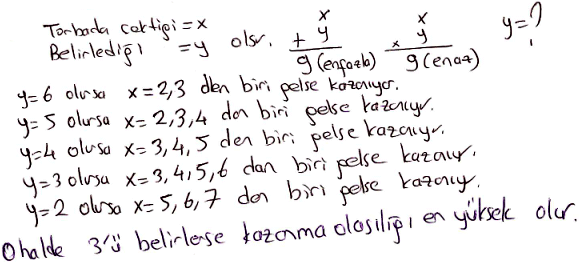 Torbada çektiği = x
Belirlediği = y olsr.
x + y 9 (enfazla)
x × y 9 (enaz)
y=?
y=6 olursa x=2,3 den biri gelse kazanıyor.
y=5 olursa x=2,3,4 den biri gelse kazanıyr.
y=4 olursa x=3,4,5 den biri gelse kazanıyr.
y=3 olursa x=3,4,5,6 dan biri gelse kazanıyr.
y=2 olursa x=5,6,7 den biri gelse kazanıyr.
O halde 3'ü belirlerse kazanma olasılığı en yüksek olur.